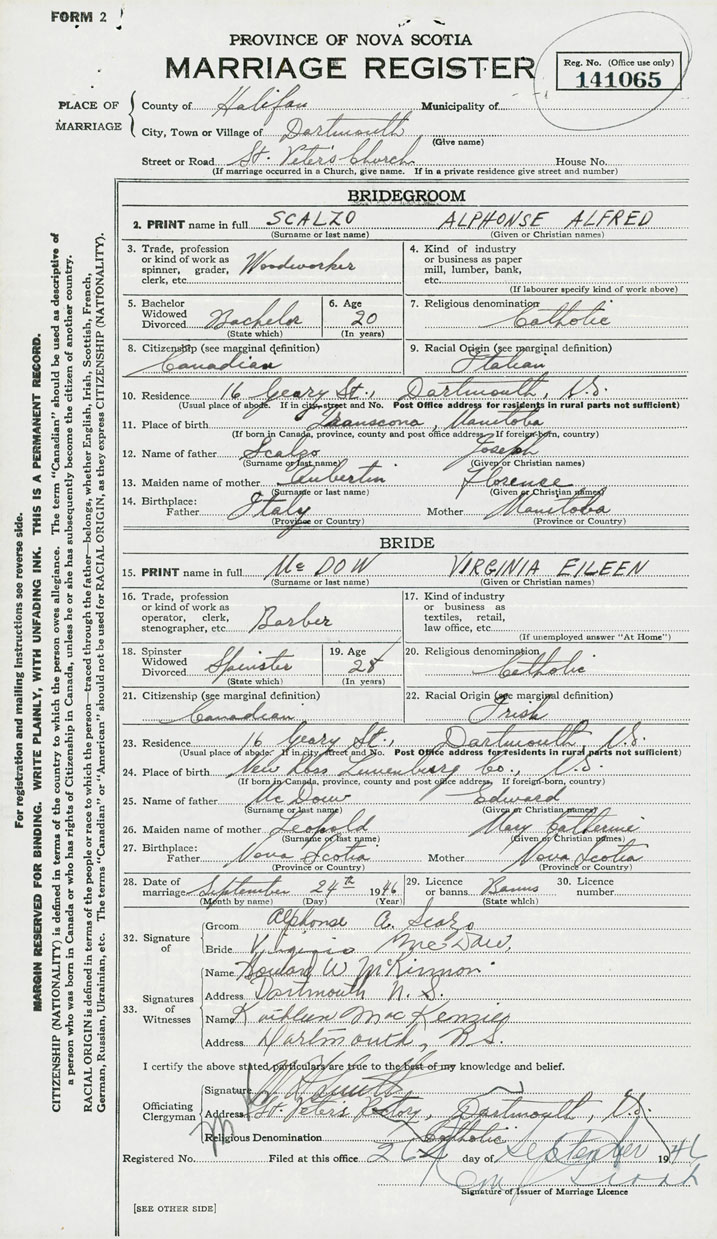 FORM 2
PROVINCE OF NOVA SCOTIA
MARRIAGE REGISTER
Reg. No. (Office use only)
141065
PLACE OF MARRIAGE
County of Halifax Municipality of
City, Town or Village of Dartmouth
(Give name)
Street or Road St. Peter's Church House No.
(If marriage occurred in a Church, give name. If in a private residence give street and number)
BRIDEGROOM
2. PRINT name in full SCALZO ALPHONSE ALFRED
(Surname or last name) (Given or Christian names)
3. Trade, profession or kind of work as spinner, grader, clerk, etc. Woodworker
4. Kind of industry or business as paper mill, lumber, bank, etc.
(If labourer specify kind of work above)
5. Bachelor Widowed Divorced Bachelor
(State which)
6. Age 20
(In years)
7. Religious denomination Catholic
8. Citizenship (see marginal definition) Canadian
9. Racial Origin (see marginal definition) Italian
10. Residence 16 Geary St., Dartmouth, N.S.
(Usual place of abode. If in city, street and No. Post Office address for residents in rural parts not sufficient)
11. Place of birth Transcona, Manitoba
(If born in Canada, province, county and post office address. If foreign-born, country)
12. Name of father Scalzo Joseph
(Surname or last name) (Given or Christian names)
13. Maiden name of mother Aubertin Florence
(Surname or last name) (Given or Christian names)
14. Birthplace: Father Italy Mother Manitoba
(Province or Country) (Province or Country)
BRIDE
15. PRINT name in full Mc DOW VIRGINIA EILEEN
(Surname or last name) (Given or Christian names)
16. Trade, profession or kind of work as operator, clerk, stenographer, etc. Barber
17. Kind of industry or business as textiles, retail, law office, etc.
(If unemployed answer "At Home")
18. Spinster Widowed Divorced Spinster
(State which)
19. Age 28
(In years)
20. Religious denomination Catholic
21. Citizenship (see marginal definition) Canadian
22. Racial Origin (see marginal definition) Irish
23. Residence 16 Geary St., Dartmouth, N.S.
(Usual place of abode. If in city, street and No. Post Office address for residents in rural parts not sufficient)
24. Place of birth New Ross Lunenburg Co., N.S.
(If born in Canada, province, county and post office address. If foreign-born, country)
25. Name of father Mc Dow Edward
(Surname or last name) (Given or Christian names)
26. Maiden name of mother Leopold Mary Catherine
(Surname or last name) (Given or Christian names)
27. Birthplace: Father Nova Scotia Mother Nova Scotia
(Province or Country) (Province or Country)
28. Date of marriage September 24th 1946
(Month by name) (Day) (Year)
29. Licence or banns Banns
(State which)
30. Licence number
32. Signature of
Groom Alphonse A.
Bride Virginia
33. Signatures of Witnesses
Name W McKinnon
Address Dartmouth N.S.
Name Kathleen MacKenzie
Address Dartmouth, N.S.
I certify the above stated particulars are true to the best of my knowledge and belief.
Officiating Clergyman
Signature
Address St. Peter's Rectory, Dartmouth, N.S.
Religious Denomination Catholic
Registered No. Filed at this office 26 day of September 1946
Signature of Issuer of Marriage Licence
[SEE OTHER SIDE]
For registration and mailing instructions see reverse side.
MARGIN RESERVED FOR BINDING. WRITE PLAINLY, WITH UNFADING INK. THIS IS A PERMANENT RECORD.
CITIZENSHIP (NATIONALITY) is defined in terms of the country to which the person owes allegiance. The term "Canadian" should be used as descriptive of
a person who was born in Canada or who has rights of Citizenship in Canada, unless he or she has subsequently become the citizen of another country.
RACIAL ORIGIN is defined in terms of the people or race to which the person—traced through the father—belongs, whether English, Irish, Scottish, French,
German, Russian, Ukrainian, etc. The terms "Canadian" or "American" should not be used for RACIAL ORIGIN, as they express CITIZENSHIP (NATIONALITY).